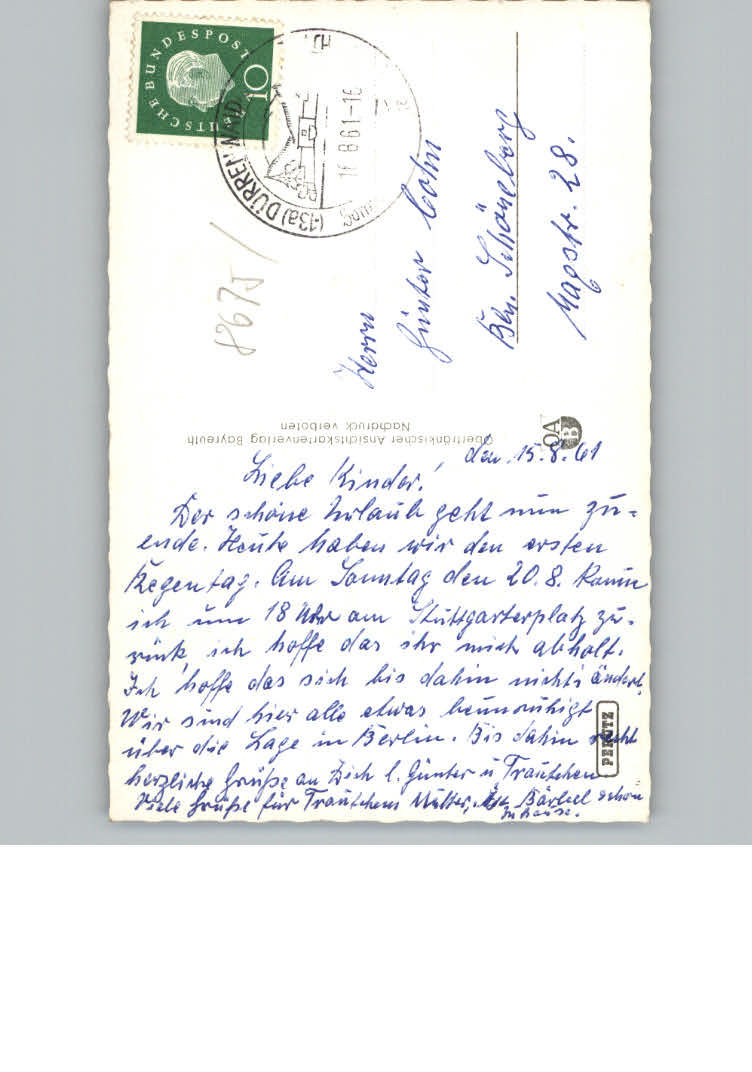 DEUTSCHE BUNDESPOST
10
(13a) DÜRRENWAID
16.8.61-16
8675
Herrn
Günter Cohn
Bln. Schöneberg
Magstr. 28.
Oberfränkischer Ansichtskartenverlag Bayreuth
Nachdruck verboten
OA
B
den 15.8.61
Liebe Kinder!
Der schöne Urlaub geht nun zu-
ende. Heute haben wir den ersten
Regentag. Am Sonntag den 20.8. komm
ich um 18 Uhr am Stuttgarterplatz zu-
rück, ich hoffe das ihr mich abholt.
Ich hoffe das sich bis dahin nichts ändert.
Wir sind hier alle etwas beunruhigt
über die Lage in Berlin. Bis dahin recht
herzliche Grüße an Dich l. Günter u Trautchen
Viele Grüße für Trautchens Mutter, Ist Bärbel schon
zuhause.
PERUTZ